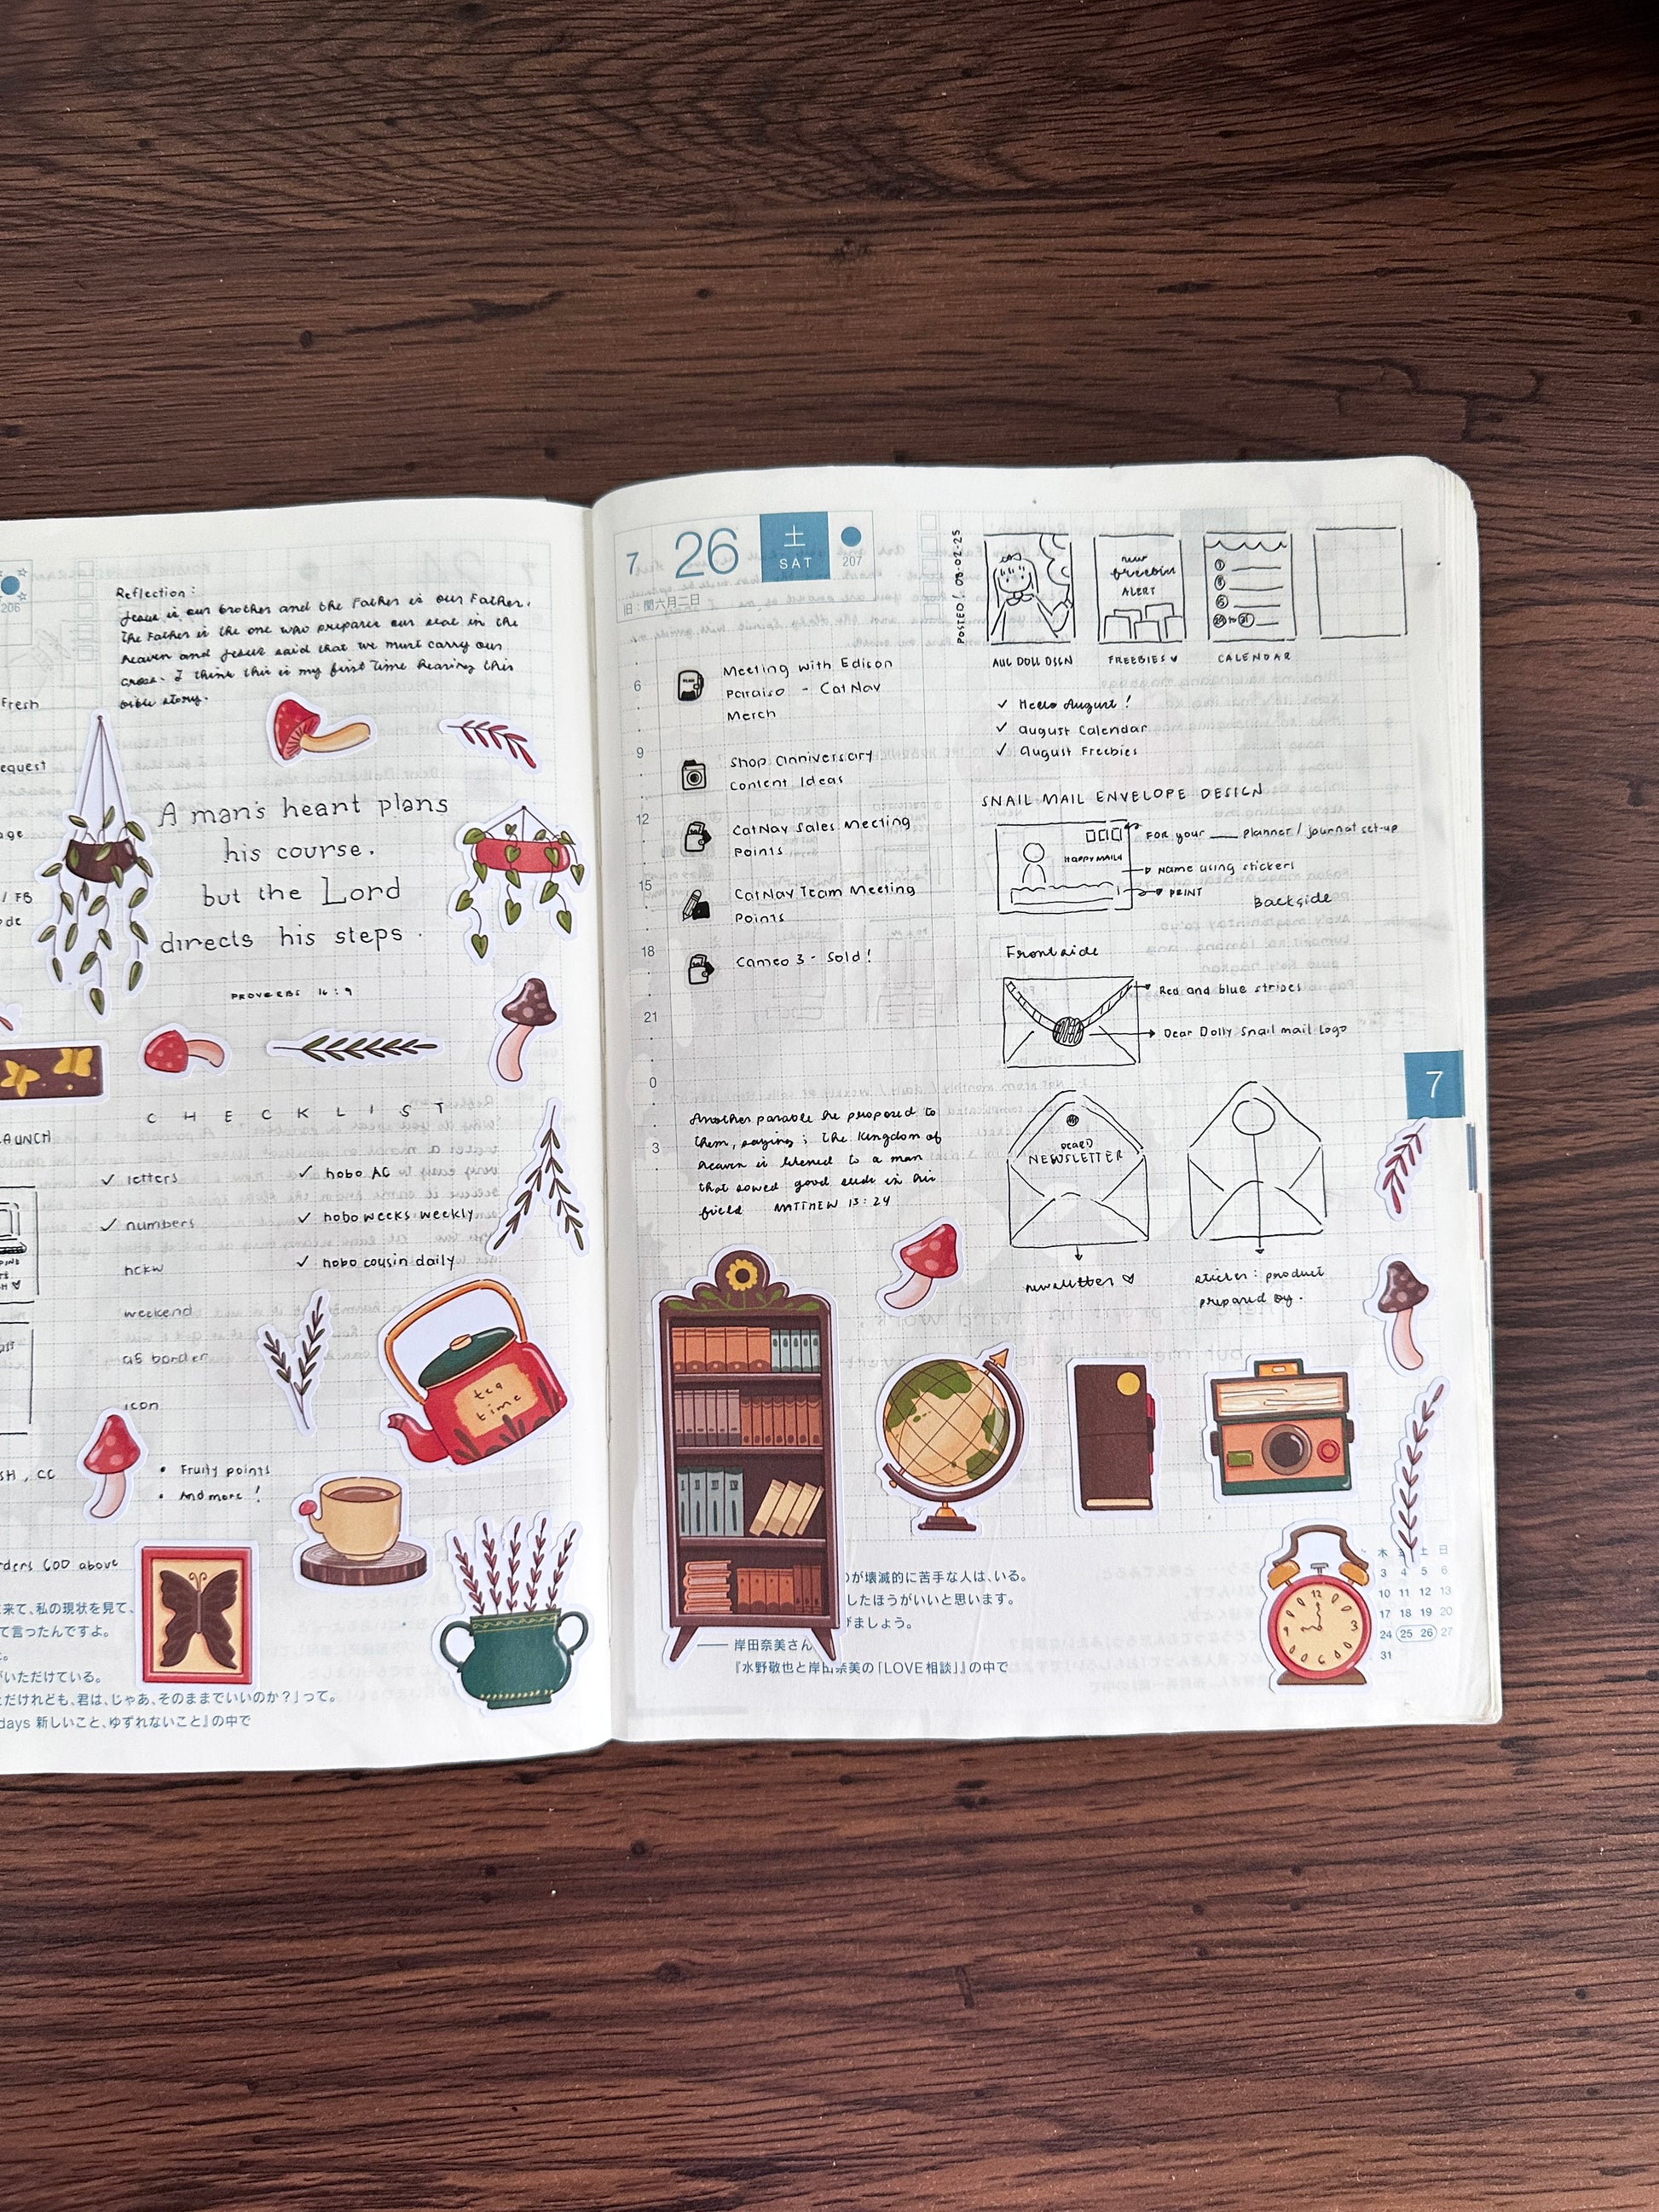 206
Reflection:
Jesus is our brother and the Father is our Father.
The Father is the one who prepares our seat in the
heaven and Jesus said that we must carry our
cross. I think this is my first time hearing this
bible story.
Fresh
equest
age
/ FB
ode
A man's heart plans
his course.
but the Lord
directs his steps.
PROVERBS 16:9
CHECKLIST
AUNCH
✓ letters
✓ numbers
nckw
weekend
a5 border
icon
✓ hobo AC
✓ hobo weeks weekly
✓ hobo cousin daily
tea
time
SH, CC
• Fruity points
• And more!
rders COD above
来て、私の現状を見て、
て言ったんですよ。
がいただけている。
だけれども、君は、じゃあ、そのままでいいのか?」って。
days 新しいこと、ゆずれないこと』の中で
7 26 土 SAT 207
旧:閏六月二日
6
9
12
15
18
21
0
3
Meeting with Edison
Paraiso - CatNav
Merch
Shop anniversary
content Ideas
CatNav Sales Meeting
Points
CatNav Team Meeting
Points
Cameo 3 - Sold!
Another parable he proposed to
them, saying: The Kingdom of
heaven is likened to a man
that sowed good seeds in his
field MATTHEW 13:24
POSTED / 08-02-25
new
freebies
ALERT
AUG DOLL DSGN
FREEBIES ♥
CALENDAR
✓ Hello August!
✓ August Calendar
✓ August Freebies
SNAIL MAIL ENVELOPE DESIGN
HAPPY MAIL
FOR your ___ planner / journal set-up
Name using stickers
PRINT
Backside
Frontside
Red and blue stripes
Dear Dolly Snail mail logo
NEWSLETTER
newsletter ♡
sticker: product
prepared by.
7
が壊滅的に苦手な人は、いる。
したほうがいいと思います。
ましょう。
—— 岸田奈美さん
『水野敬也と岸田奈美の「LOVE相談」』の中で
12
3
6
9
木 土 日
3 4 5 6
10 11 12 13
17 18 19 20
24 25 26 27
31